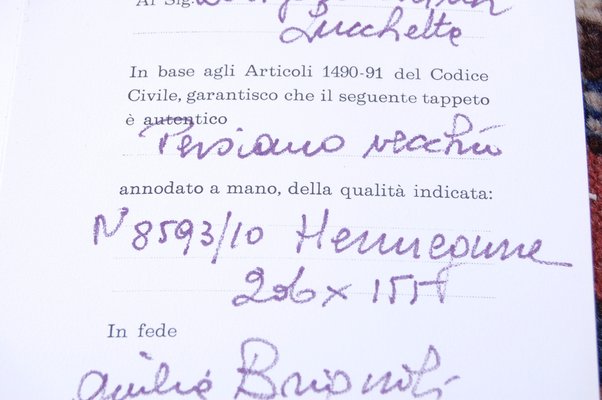 Al Sig.
Lucchetta
In base agli Articoli 1490-91 del Codice
Civile, garantisco che il seguente tappeto
è autentico
Persiano vecchio
annodato a mano, della qualità indicata:
N° 8593/10
206 x 155
In fede
Giulio